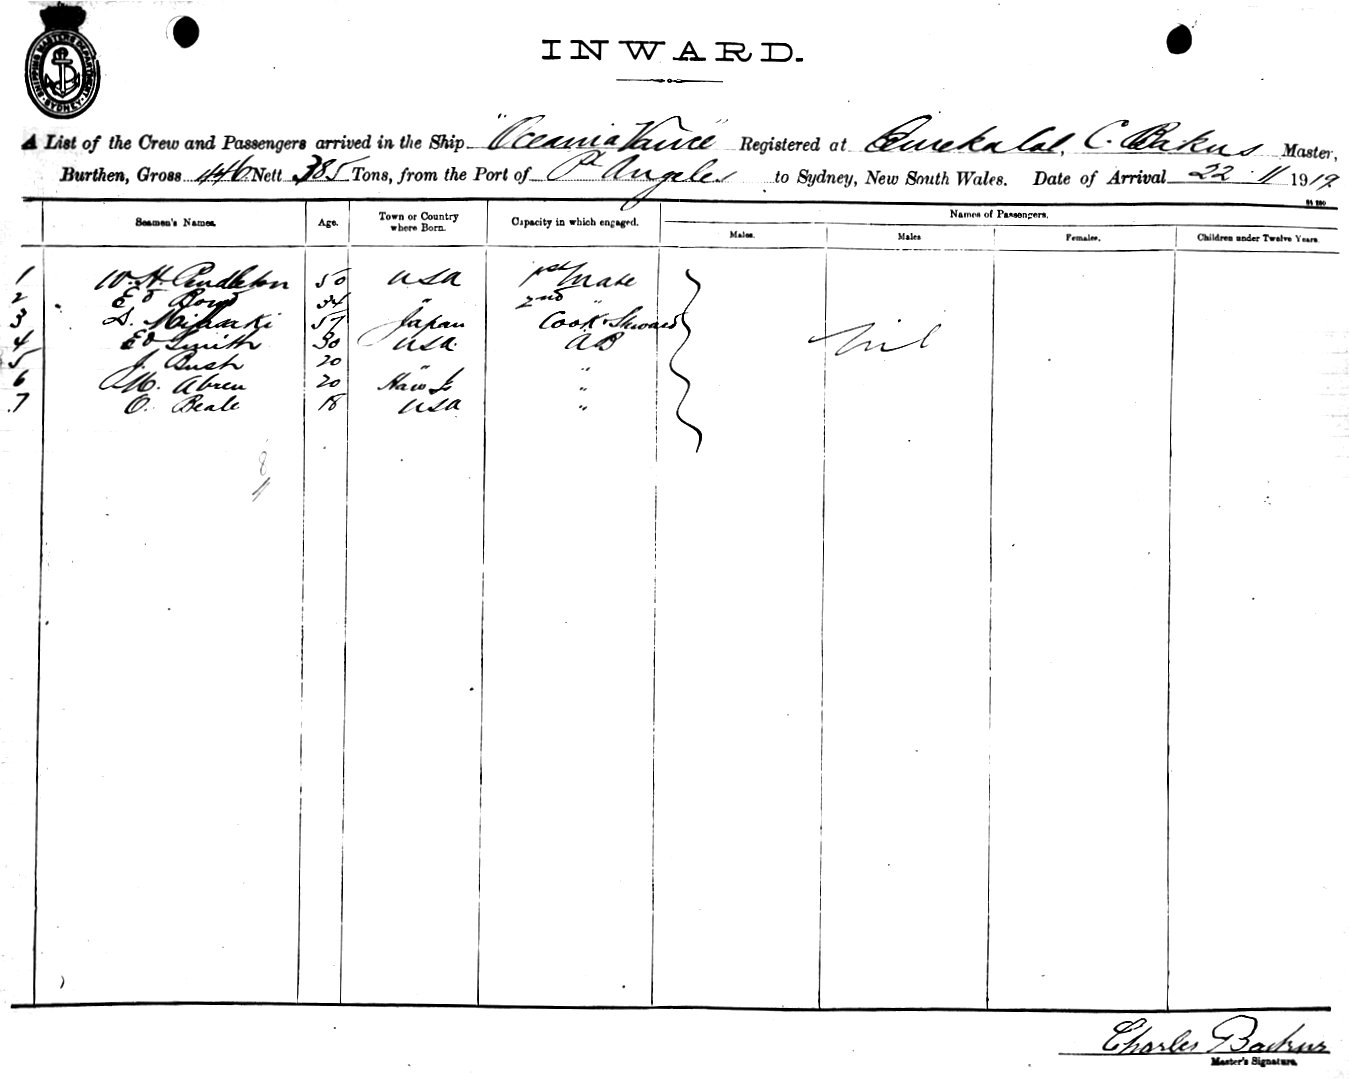 SHIPPING MASTERS DEPARTMENT SYDNEY
INWARD.
A List of the Crew and Passengers arrived in the Ship "Oceania Vance" Registered at Eureka Cal, C. Bakus Master,
Burthen, Gross 446 Nett 385 Tons, from the Port of Pt Angeles to Sydney, New South Wales. Date of Arrival 22.11 1919
Seamen's Names. Age. Town or Country where Born. Capacity in which engaged. Names of Passengers.
Males. Males Females. Children under Twelve Years.
1 W. H. Pendleton 50 USA 1st Mate
2 Ed Boyd 34 " 2nd "
3 57 Japan Cook & Steward
4 Ed Smith 30 USA. AB
5 J. Bush 20 " "
6 M. Abreu 20 Haw Is "
7 O. Beale 18 USA "
Nil
8
Charles Backus
Master's Signature.